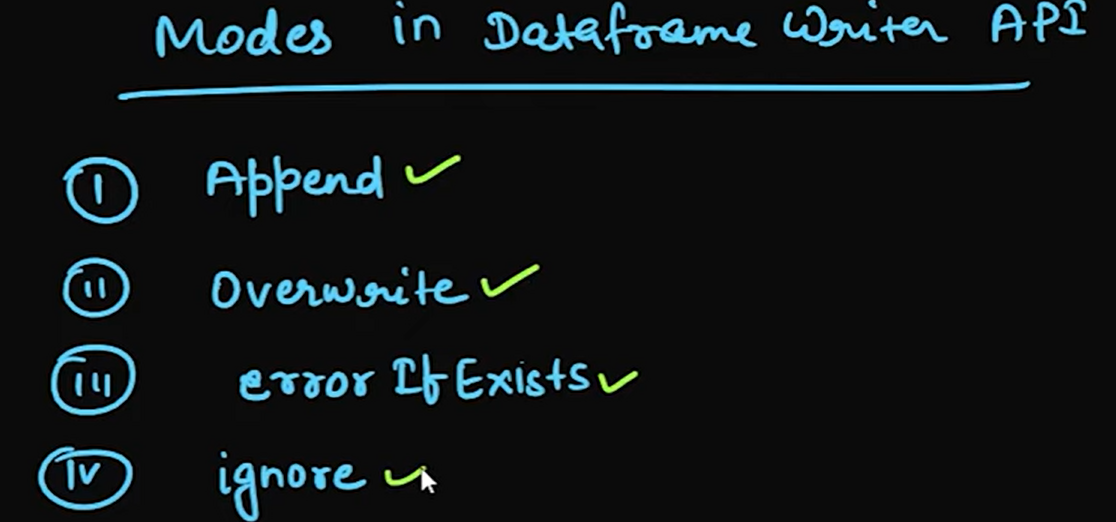 Modes in Dataframe Writer API
I Append
II Overwrite
III error If Exists
IV ignore